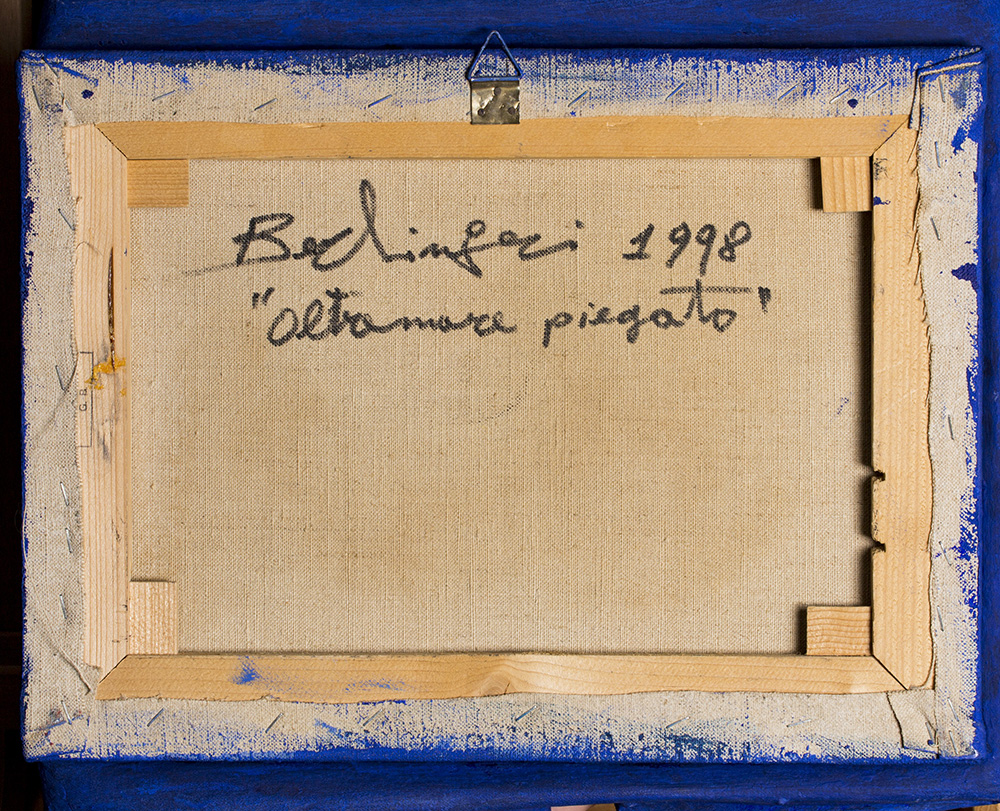 Berlingeri 1998
"oltramare piegato"
G.B